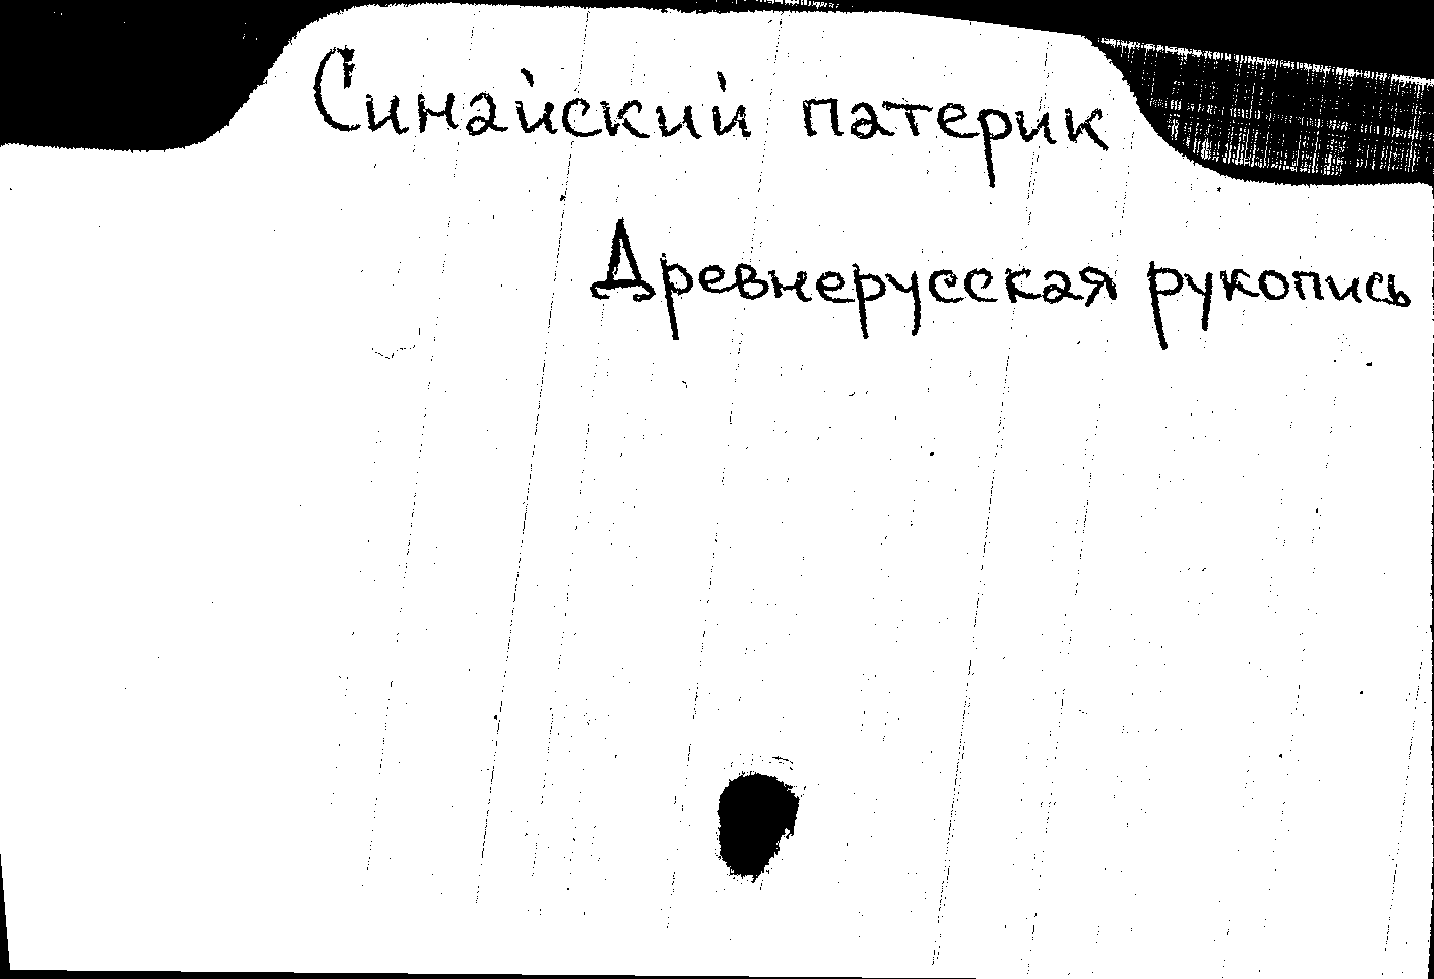 Синайский патерик
Древнерусская рукопись